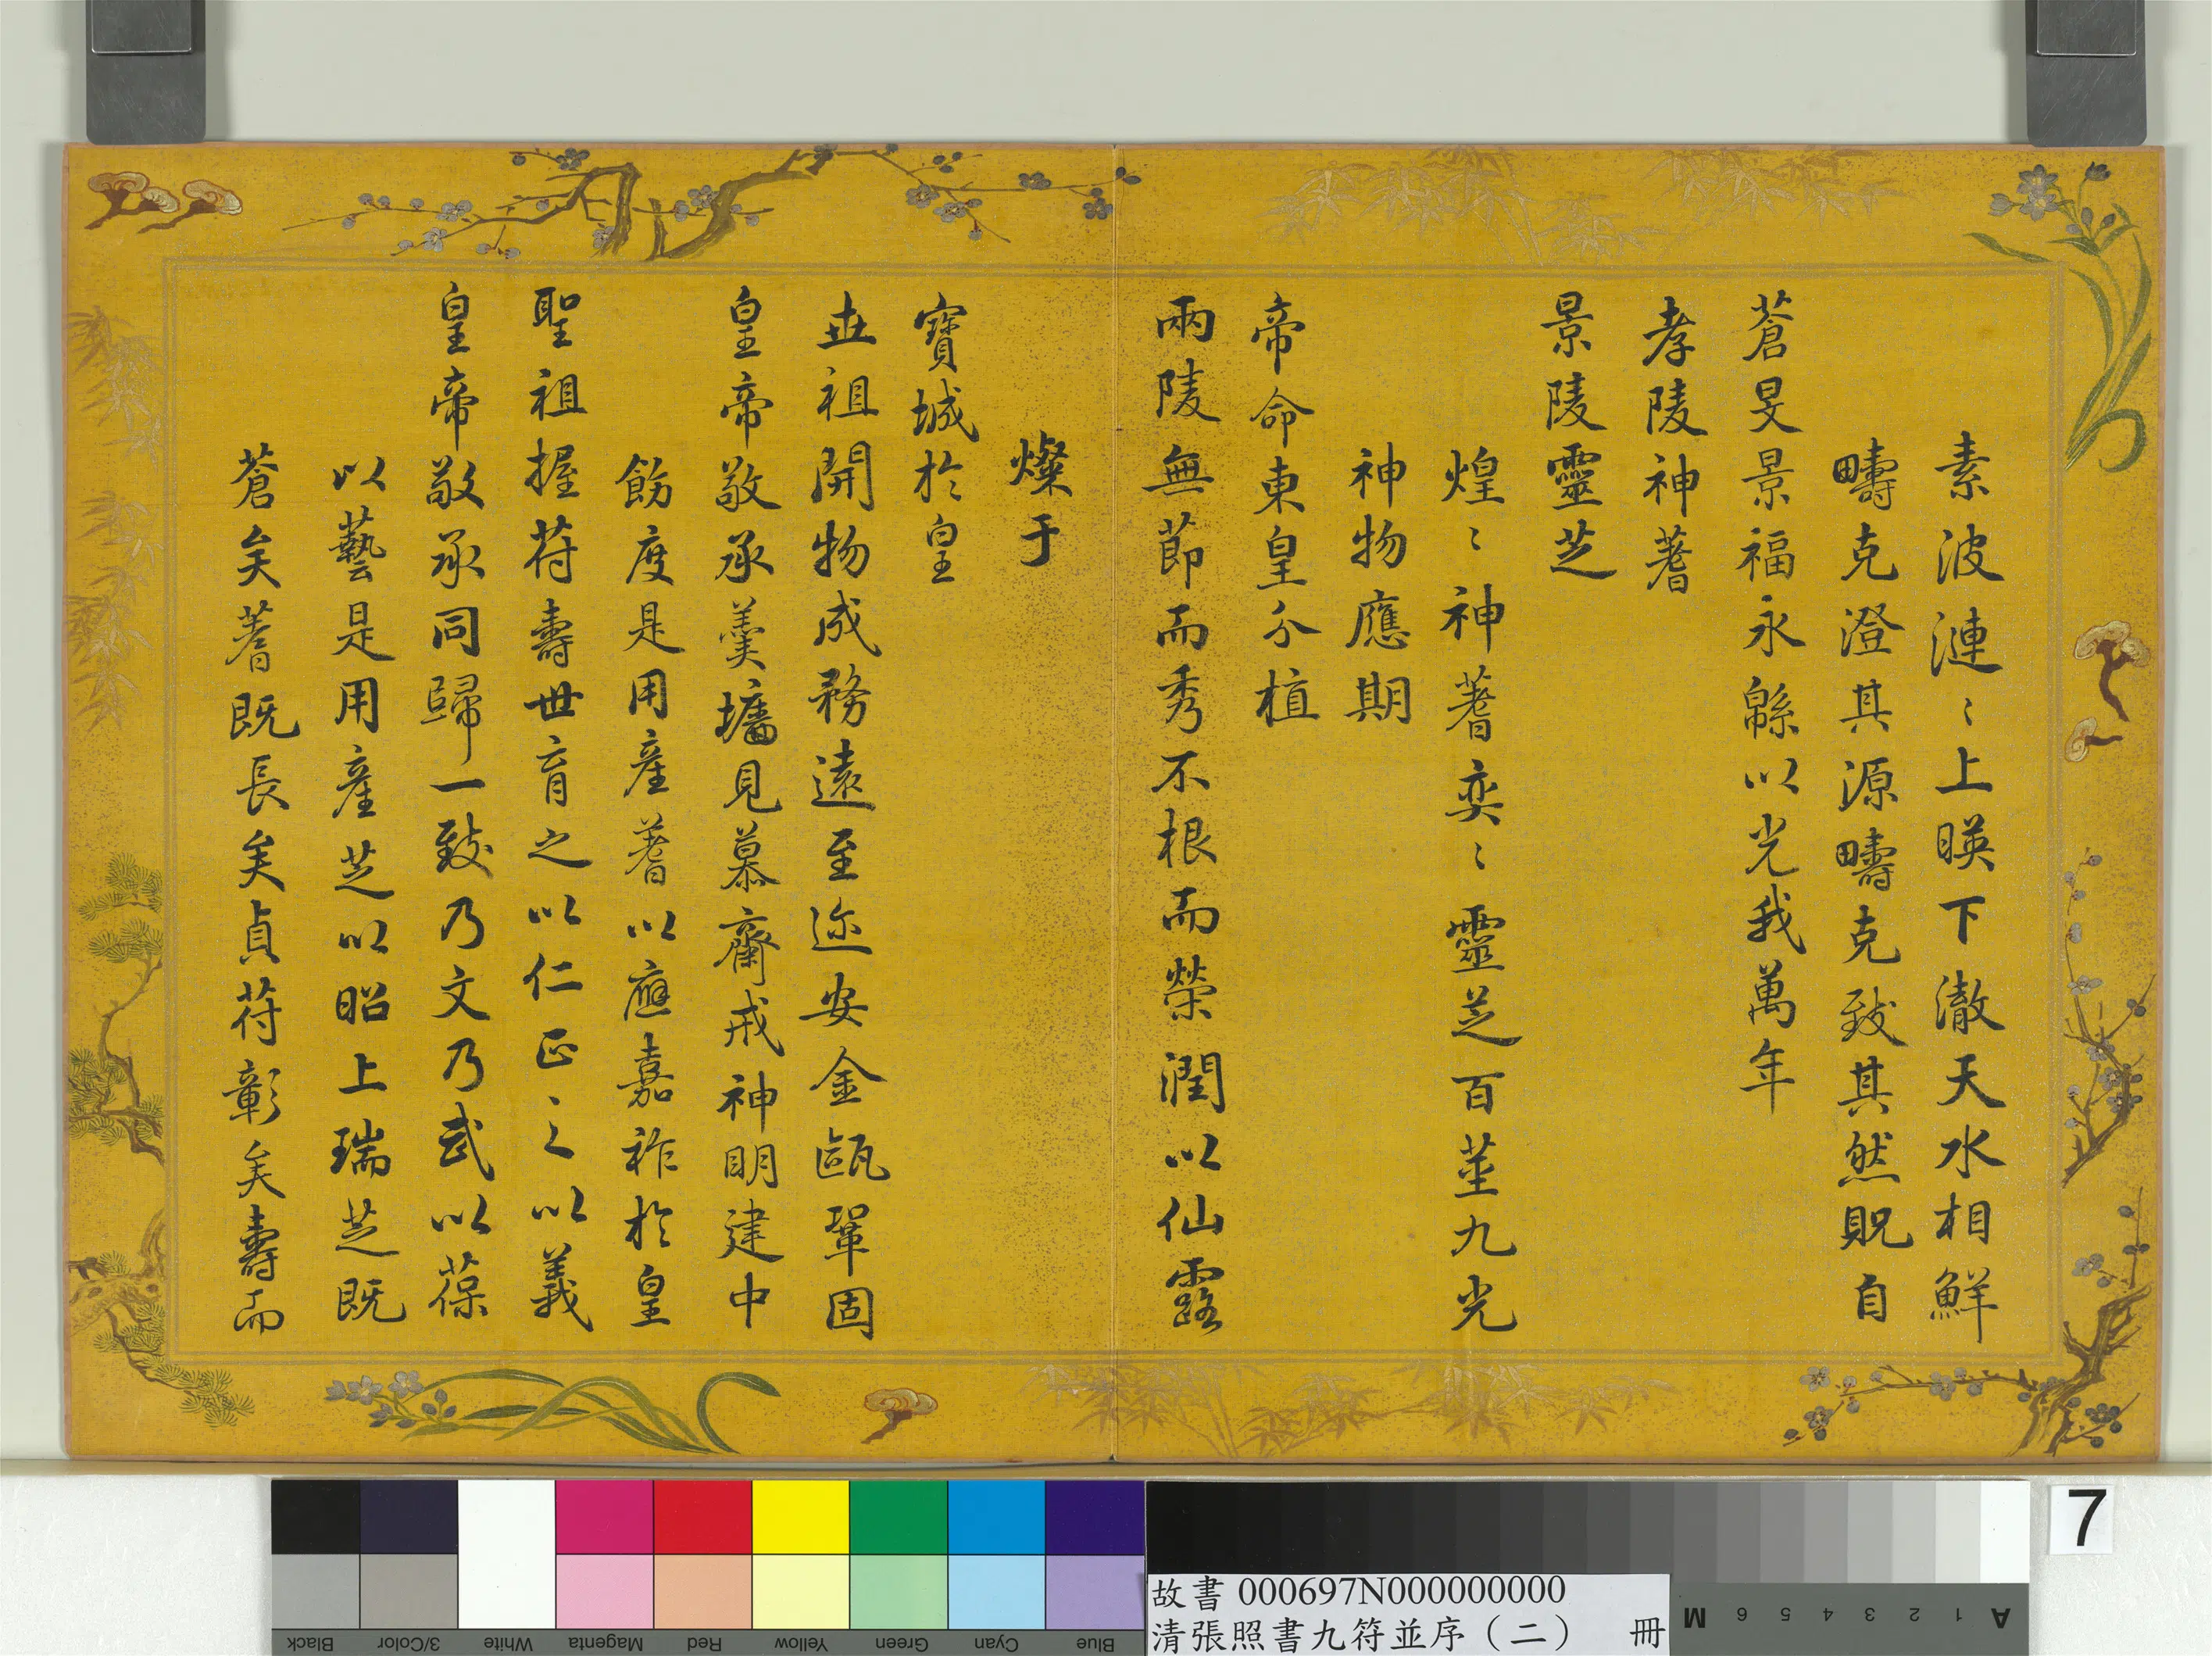 素波漣〻上暎下澈天水相鮮
疇克澄其源疇克致其然貺自
蒼旻景福永緜以光我萬年
孝陵神蓍
景陵靈芝
煌〻神蓍奕〻靈芝百莖九光
神物應期
帝命東皇分植
兩陵無莭而秀不根而榮潤以仙露
燦于
寶城於皇
世祖開物成務遠至迩安金甌鞏固
皇帝敬承羹墻見慕齋戒神明建中
飭度是用產蓍以應嘉祚於皇
聖祖握苻壽世育之以仁正之以義
皇帝敬承同歸一致乃文乃武以葆
以藝是用產芝以昭上瑞芝既
蒼矣蓍既長矣貞苻彰矣壽而
7
故書 000697N000000000
清張照書九符並序（二） 冊
Black
3/Color
White
Magenta
Red
Yellow
Green
Cyan
Blue
A 1 2 3 4 5 6 M